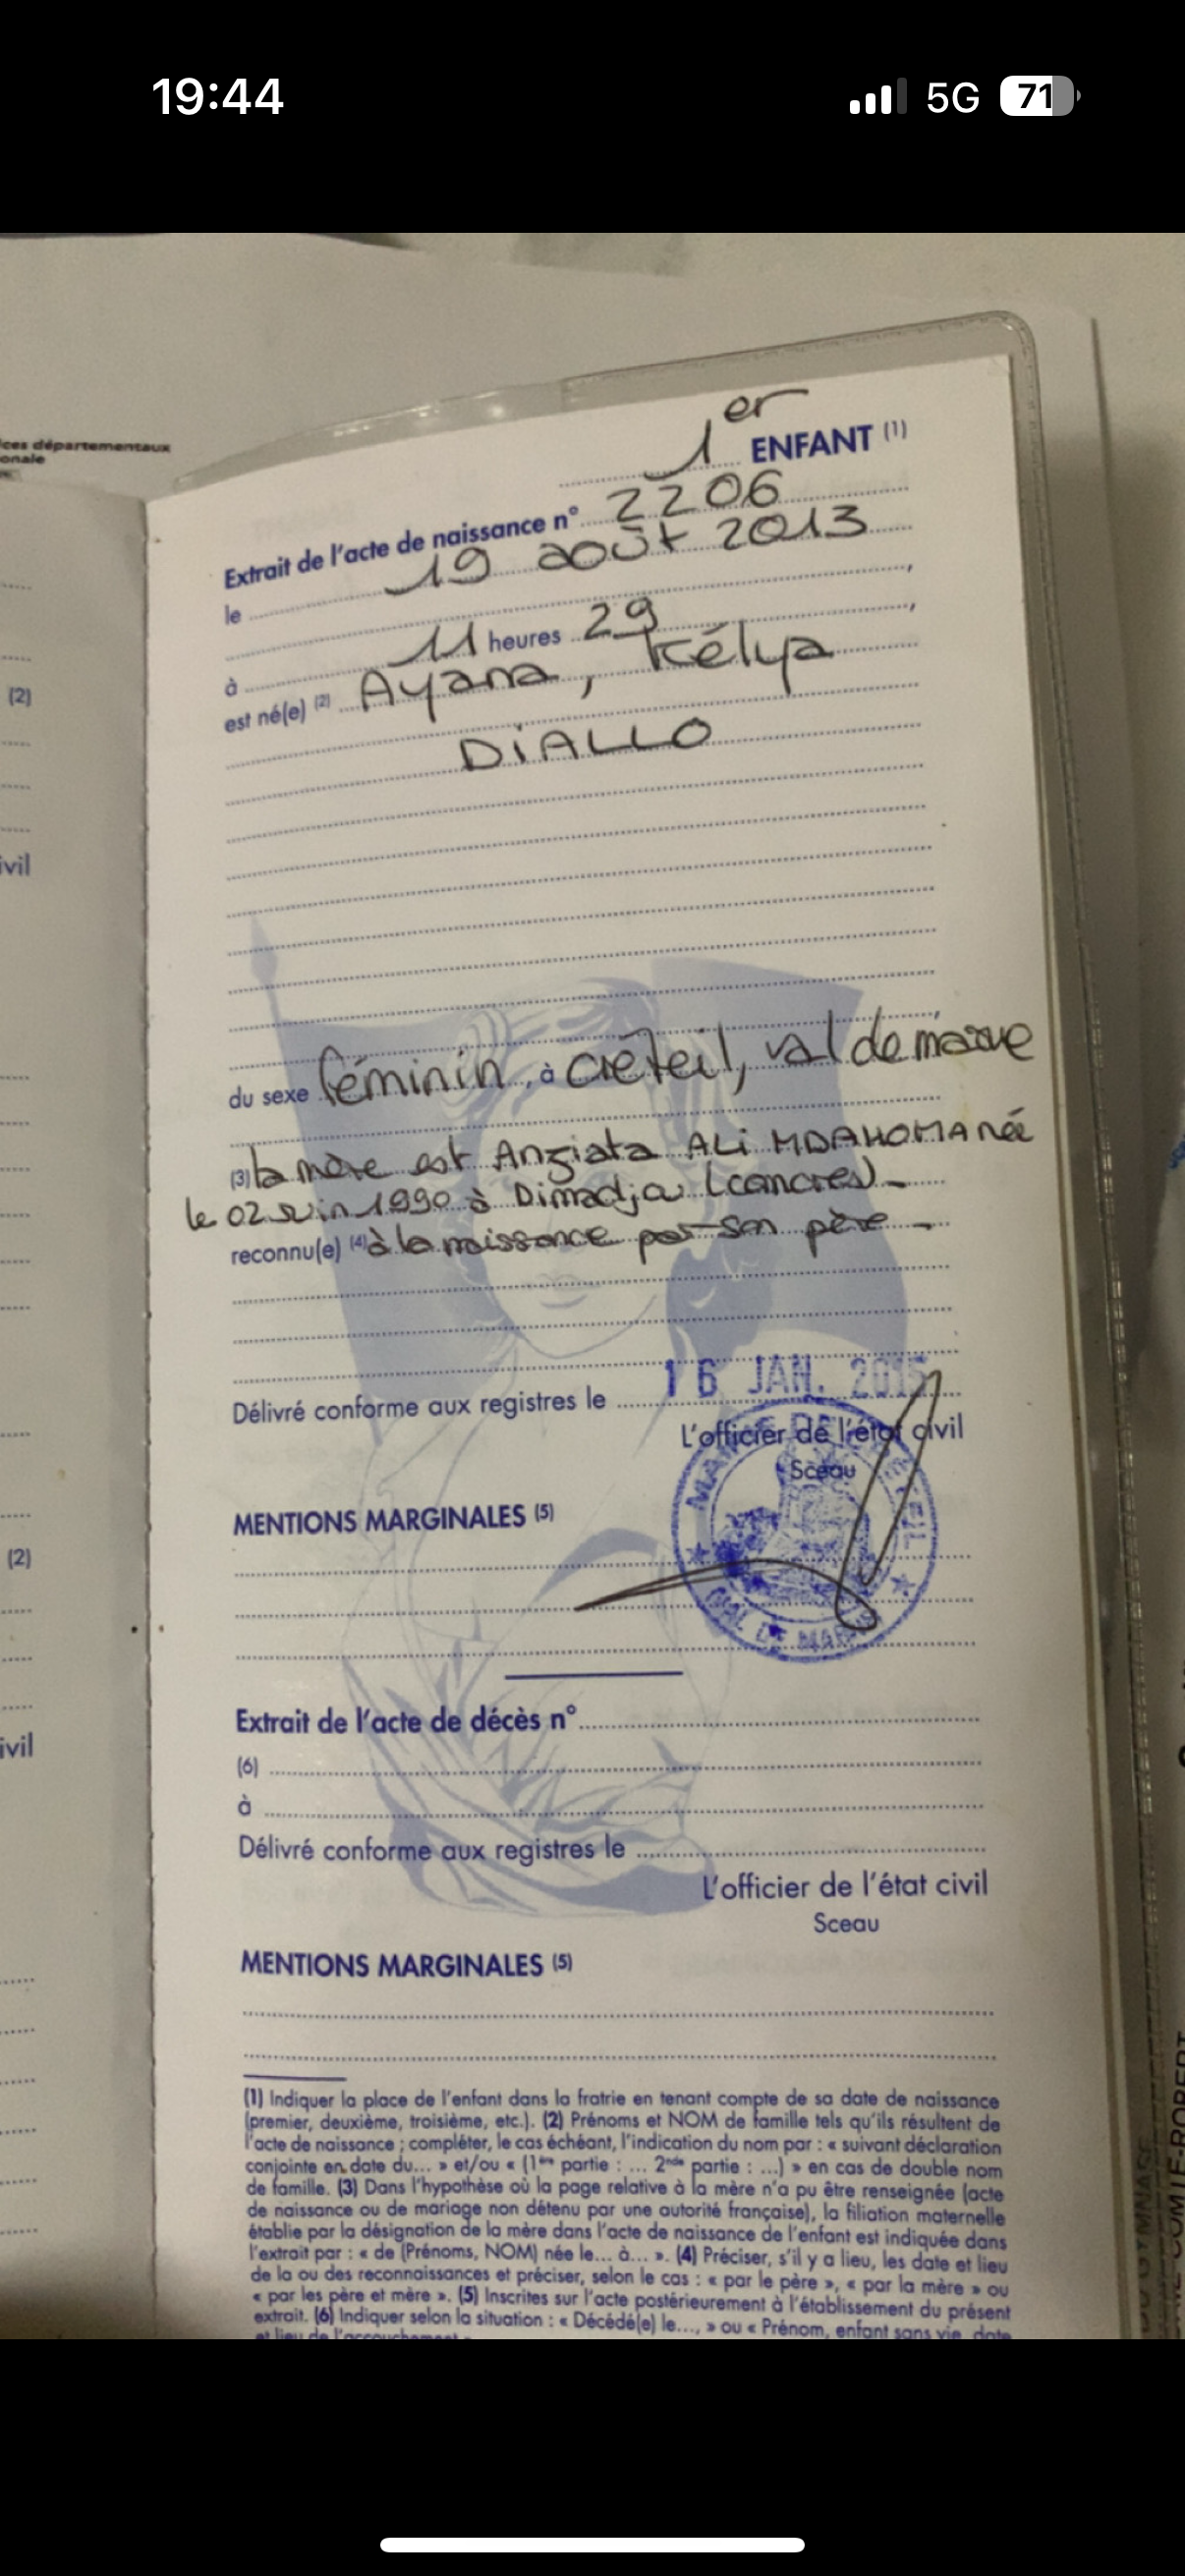 19:44 5G 71
ces départementaux
onale
1er ENFANT (1)
Extrait de l'acte de naissance n° 2206
le 19 août 2013
,
à 11 heures 29,
est né(e) (2) Ayana, Kélya
DIALLO
(2)
ivil
du sexe féminin, à Créteil, val de marne
(3) la mère est Anziata ALI MDAHOMA née
le 02 juin 1990 à Dimadjou (comores)_
reconnu(e) (4) à la naissance par son père_
16 JAN. 2015
Délivré conforme aux registres le
L'officier de l'état civil
Sceau
VAL DE MARNE
MENTIONS MARGINALES (5)
(2)
ivil
Extrait de l'acte de décès n°
(6)
à
Délivré conforme aux registres le
L'officier de l'état civil
Sceau
MENTIONS MARGINALES (5)
(1) Indiquer la place de l'enfant dans la fratrie en tenant compte de sa date de naissance
(premier, deuxième, troisième, etc.). (2) Prénoms et NOM de famille tels qu'ils résultent de
l'acte de naissance ; compléter, le cas échéant, l'indication du nom par : « suivant déclaration
conjointe en date du... » et/ou « (1ère partie : ... 2nde partie : ...) » en cas de double nom
de famille. (3) Dans l'hypothèse où la page relative à la mère n'a pu être renseignée (acte
de naissance ou de mariage non détenu par une autorité française), la filiation maternelle
établie par la désignation de la mère dans l'acte de naissance de l'enfant est indiquée dans
l'extrait par : « de (Prénoms, NOM) née le... à... ». (4) Préciser, s'il y a lieu, les date et lieu
de la ou des reconnaissances et préciser, selon le cas : « par le père », « par la mère » ou
« par les père et mère ». (5) Inscrites sur l'acte postérieurement à l'établissement du présent
extrait. (6) Indiquer selon la situation : « Décédé(e) le..., » ou « Prénom, enfant sans vie, date
et lieu de l'accouchement